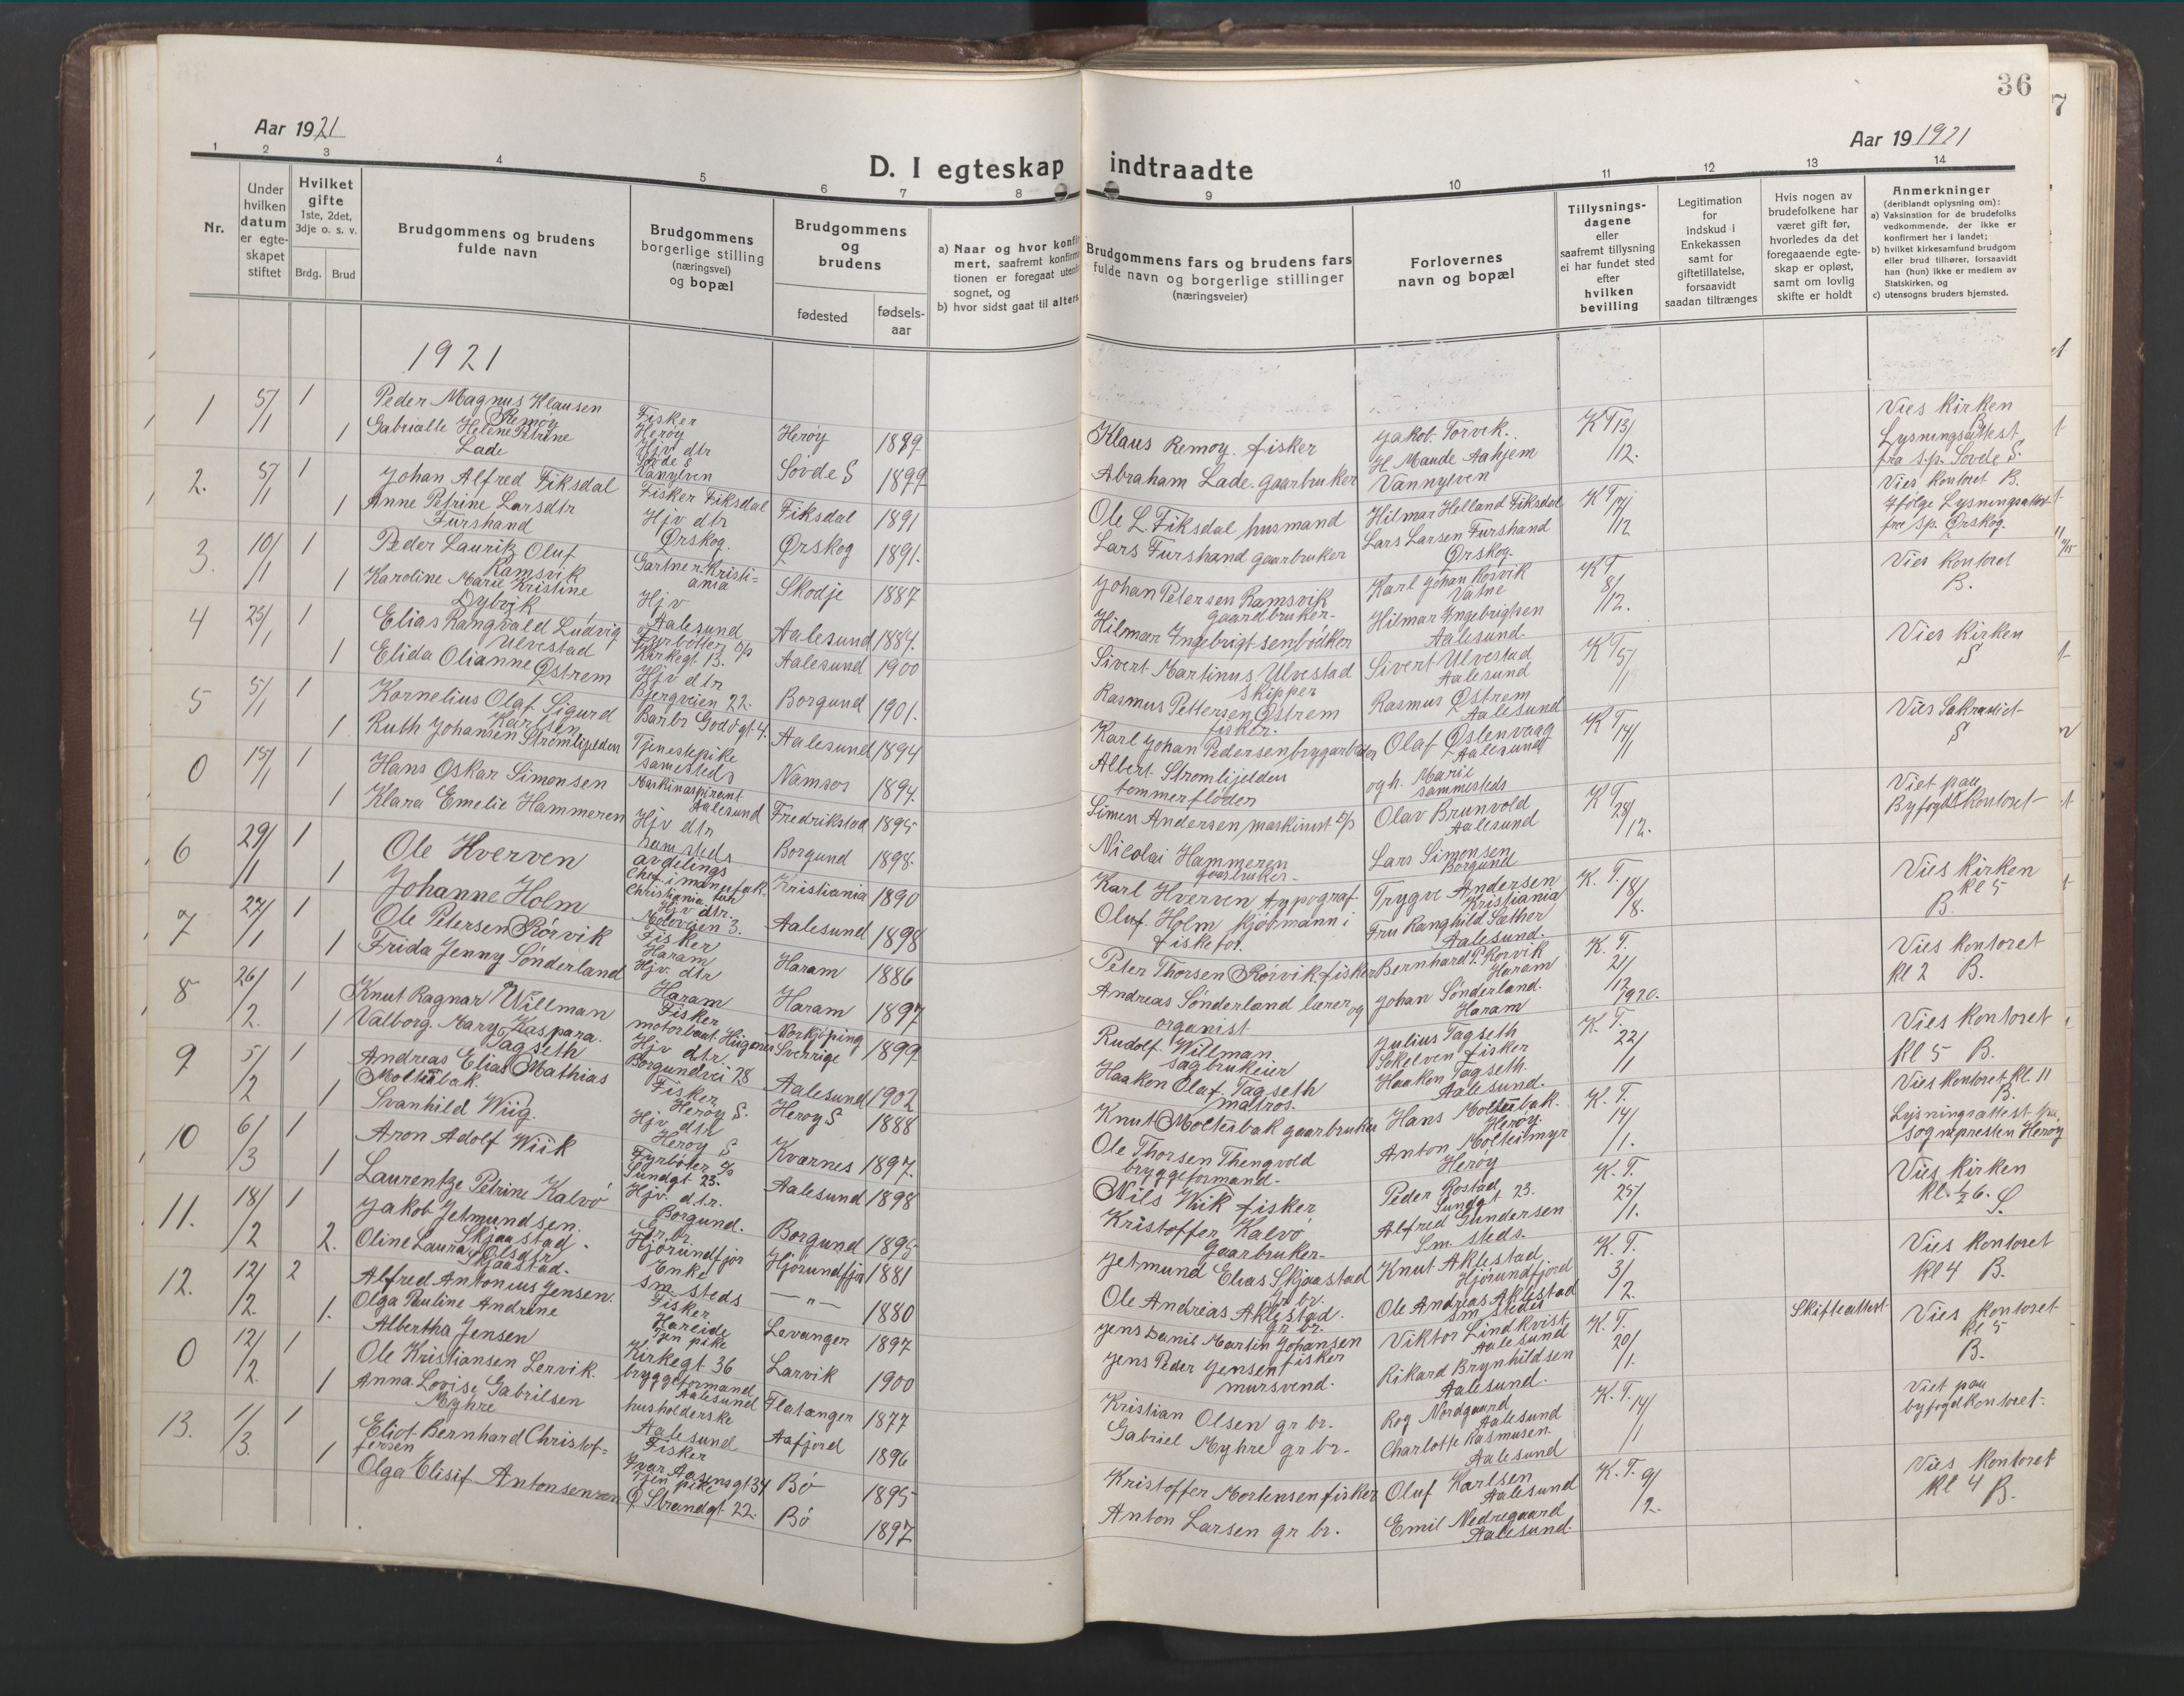 36
Aar 1921
Aar 19 1921
D. I egteskap indtraadte
1 2 3 4 5 6 7 8 9 10 11 12 13 14
Nr.
Under
hvilken
datum
er egte-
skapet
stiftet
Hvilket
gifte
1ste, 2det,
3dje o. s. v.
Brdg. Brud
Brudgommens og brudens
fulde navn
Brudgommens
borgerlige stilling
(næringsvei)
og bopæl
Brudgommens
og
brudens
fødested
fødsels-
aar
a) Naar og hvor konfir
mert, saafremt konfirm
tionen er foregaat utenf
sognet, og
b) hvor sidst gaat til alters
Brudgommens fars og brudens fars
fulde navn og borgerlige stillinger
(næringsveier)
Forlovernes
navn og bopæl
Tillysnings-
dagene
eller
saafremt tillysning
ei har fundet sted
efter
hvilken
bevilling
Legitimation
for
indskud i
Enkekassen
samt for
giftetillatelse,
forsaavidt
saadan tiltrænges
Hvis nogen av
brudefolkene har
været gift før,
hvorledes da det
foregaaende egte-
skap er opløst,
samt om lovlig
skifte er holdt
Anmerkninger
(deriblandt oplysning om):
a) Vaksination for de brudefolks
vedkommende, der ikke er
konfirmert her i landet;
b) hvilket kirkesamfund brudgom
eller brud tilhører, forsaavidt
han (hun) ikke er medlem av
Statskirken, og
c) utensogns bruders hjemsted.
1921
1 5/1 1
Peder Magnus Klausen
Remøy
Fisker
Herøy
Herøy 1899
Klaus Remøy. fisker
Jakob Torvik.
K T 13/12.
Vies kirken
B
1 Gabrielle Helene Petrine
Lade
Hjv dtr
Søvde S
Vanylven
Søvde S 1899
Abraham Lade. gaarbruker
H. Maude Aahjem
Vannylven
Lysningsattest
fra s.p. Søvde S.
2. 5/1 1
Johan Alfred Fiksdal
Fisker Fiksdal
Fiksdal 1891
Ole L. Fiksdal husmand
Hilmar Helland Fiksdal
K T 7/12
Vies kontoret B.
1 Anne Petrine Larsdtr
Furshand
Hjv dtr
Ørskog.
Ørskog 1891.
Lars Furshand gaarbruker
Lars Larsen Furshand
Ørskog.
Ifølge Lysningsattest
fra sp. Ørskog.
3. 10/1 1
Peder Lauritz Oluf
Ramsvik
Gartner Kristi=
ania
Skodje 1887
Johan Petersen Ramsvik
gaardbruker-
Karl Johan Rosvik
Vatne
K T 8/12.
Vies kontoret
B.
1 Karoline Marie Kristine
Dybvik
Hjv
Aalesund
Aalesund 1884.
Hilmar Ingebrigtsen bødker
Hilmar Ingebrigtsen
Aalesund.
4 25/1 1
Elias Rangvald Ludvig
Ulvestad
Fyrbøtter D/S
Kirkegt. 13.
Aalesund 1900
Sivert Martinus Ulvestad
Skipper
Sivert Ulvestad
Aalesund
K T 5/1
Vies kirken
S
1 Elida Olianne Østrem
Hjv dtr
Bjergveien 22.
Borgund 1901.
Rasmus Pettersen Østrem
fisker.
Rasmus Østrem
Aalesund
5 5/1 1
Kornelius Olaf Sigurd
Karlsen
Barbr Godøgt 4.
Aalesund 1894
Karl Johan Pedersen brygarbeider
Olaf Østenvaag
Aalesund
K T 14/1
Vies Sakrastiet
S
1 Ruth Johansen Strømlijelden
Tjenestepike
samesteds
Namsos 1894.
Albert Strømlijelden
tømmerfløder
og h. Marie
sammesteds
0 15/1 1
Hans Oskar Simonsen
Maskinaspirant
Aalesund
Fredrikstad 1895
Simen Andersen maskinist D/S
Olav Brunvold
Aalesund
K T 28/12.
Viet paa
Byfogdkontoret
1 Klara Emelie Hammeren
Hjv dtr
samsteds
Borgund 1898.
Nicolai Hammeren
gaarbruker-
Lars Simonsen
Borgund
6 29/1 1
Ole Hverven
avdelings
Chef i manufak.
Christiania
Kristiania 1890
Karl Hverven typograf
Trygve Andersen
Kristiania
K. T. 18/8.
Vies kirken
kl 5
B.
1 Johanne Holm
Hjv dtr.
Moloveien 3.
Aalesund 1898
Oluf Holm kjøbmann i
fiskefor.
Fru Ranghild Sæther
Aalesund.
7 27/1 1
Ole Petersen Rørvik
Fisker
Haram
Haram 1886
Peter Thorsen Rørvik. fisker
Bernhard P. Rørvik
Haram
K. T. 21/12 1920.
Vies kontoret
kl 2 B.
1 Frida Jenny Sønderland
Hjv. dtr
Haram
Haram 1897
Andreas Sønderland lærer og
organist
Johan Sønderland.
Haram
8 26/2. 1
Knut Ragnar Willman
Fisker
motorbaat
Norkjøping
Sverrige 1899
Rudolf Willman
sagbrukeier
Julius Tagseth
fisker
K. T. 22/1
Vies kontoret
kl 5 B.
1 Valborg. Mary Kaspara.
Tagseth
Hjv dtr.
Borgundvei 28
Aalesund 1902
Haakon Olaf. Tagseth
matros.
Haakon Tagseth.
Aalesund.
9 5/2 1
Andreas Elias Mathias
Moltubak.
Fisker
Herøy S.
Herøy S 1888
Knut Moltubak gaarbruker
Hans Moltubak.
Herøy.
K. T. 14/1.
Vies kontoret kl. 11
B.
1 Svanhild Wiig.
Hjv dtr
Herøy S
Kværnes 1897.
Ole Thorsen Thengvold
bryggeformand.
Anton Moltumyr
Herøy
Lysningsattest fra
sognepresten Herøy
10 6/3 1
Aron Adolf Wiik
Fyrbøter D/S
Sundgt 23.
Aalesund 1898
Nils Wiik fisker
Peder Rostad
Sundgt 23.
K. T. 25/1.
Vies kirken
kl. ½ 6. S.
1 Laurentze Petrine Kalvø
Hjv. dtr.
Borgund.
Borgund 1895
Kristoffer Kalvø
Gaarbruker-
Alfred Gundersen
Sm. steds.
11. 18/2 1
Jakob Jetmundsen.
Skjaastad.
Gr. br.
Hjørundfjor
Hjørundfjor 1881
Jetmund Elias Skjaastad
gr br.
Knut Aklestad
Hjørundfjord
K. T. 3/2.
Vies kontoret
kl 4 B.
2. Oline Laura Olsdtr
Skjaastad.
Enke
sm. steds
— " — 1880
Ole Andreas Aklestad.
gr br.
Ole Andreas Aklestad
sm steds
Skifteattest
12. 12/2. 2
Alfred Antonius Jensen.
Fisker
Hareide
Levanger 1897
Jens Daniel Martin Johansen
fisker
Viktor Lindkvist
Aalesund
K. T. 20/1.
Vies kontoret
kl 5
B.
1. Olga Pauline Andrine
Albertha Jensen
Tjen pike
Kirkegt 36
Larvik 1900
Jens Peder Jensen
mursvend.
Rikard Brynhildsen
Aalesund.
0 12/2. 1
Ole Kristiansen Lervik.
bryggeformand
Aalesund
Flatanger 1877
Kristian Olsen gr br.
Nordgaard
Aalesund
K. T. 14/1
Viet paa
byfogdkontoret.
1 Anna Lovise Gabrilsen
Myhre
husholderske
Aalesund
Aafjord 1896
Gabriel Myhre gr br.
Charlotte Rasmusen.
Aalesund
13. 1/3. 1
Eliot Bernhard Christof=
fersen
Fisker
Ivar Aasensgt 34
Bø 1895
Kristoffer Mortensen fisker
Oluf Karlsen
Aalesund
K. T. 9/2.
Vies kontoret
kl 4 B.
1 Olga Elisif Antonsen
Tjen pike
Ø Strandgt 22.
Bø 1897
Anton Larsen gr br.
Emil Nedregaard
Aalesund.